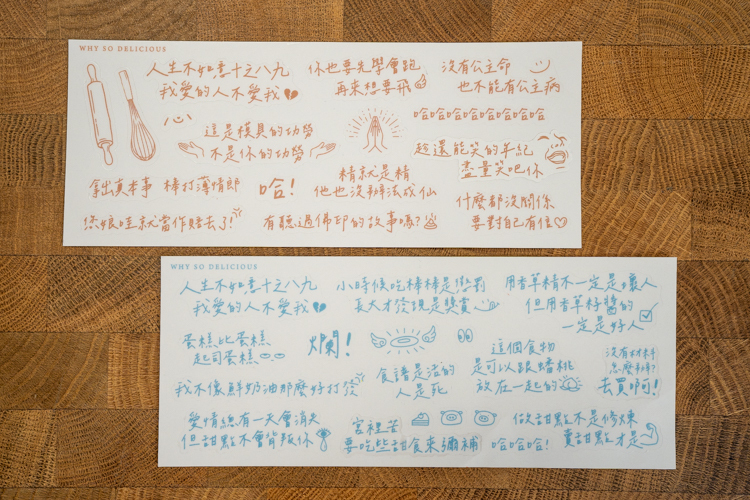 WHY SO DELICIOUS
人生不如意十之八九
我愛的人不愛我
你也要先學會跑
再來想要飛
沒有公主命
也不能有公主病
這是模具的功勞
不是你的功勞
哈哈哈哈哈哈哈哈哈
趁還能笑的年紀
盡量笑吧你
拿出真本事 棒打薄情郎
哈!
精就是精
他也沒辦法成仙
什麼都沒關係
要對自己有信
您娘哇就當作賠去了!
有聽過佛印的故事嗎?
WHY SO DELICIOUS
人生不如意十之八九
我愛的人不愛我
小時候吃棒棒是懲罰
長大才發現是獎賞
用香草精不一定是壞人
但用香草籽醬的
一定是好人
蛋糕比蛋糕
起司蛋糕
爛!
食譜是活的
人是死
這個食物
是可以跟蟠桃
放在一起的
沒有材料
怎麼辦?
去買啊!
我不像鮮奶油那麼好打發
愛情總有一天會消失
但甜點不會背叛你
宮裡苦
要吃些甜食來彌補
做甜點不是修煉
賣甜點才是
哈哈哈!